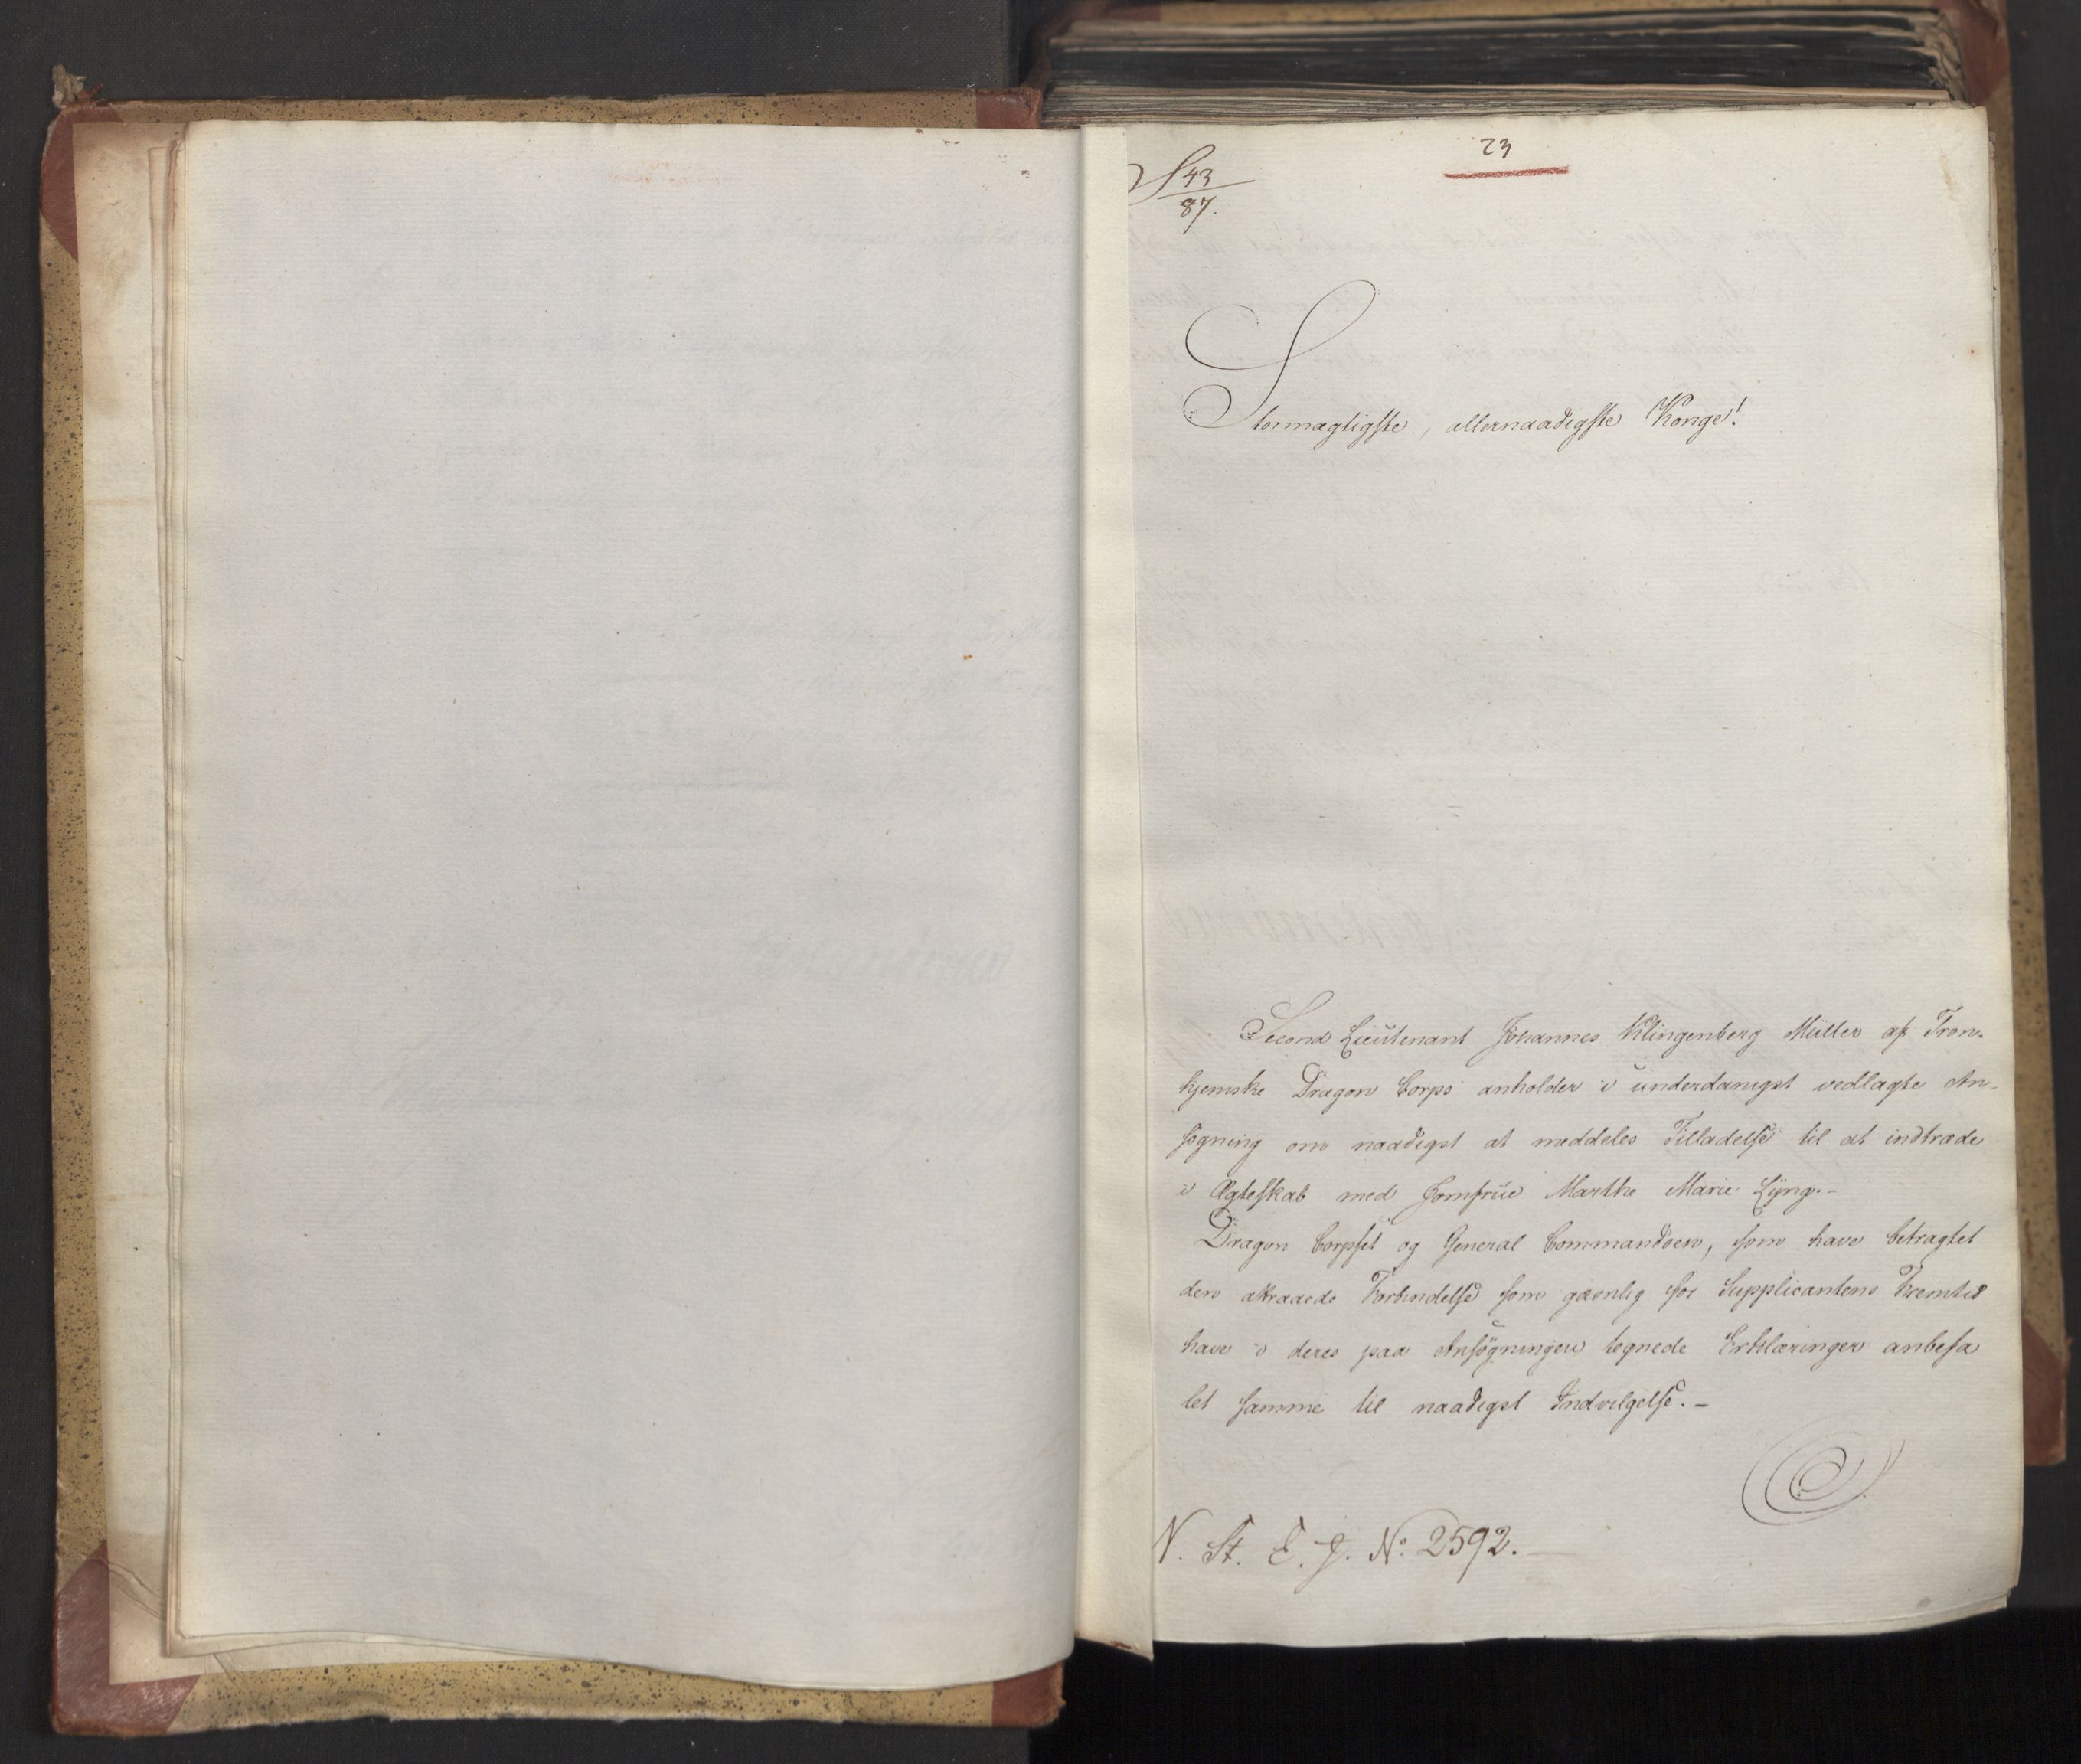 23
S 43
87.
Stormægtigste, allernaadigste Konge!
Second Lieutenant Johannes Klingenberg Müller af Tron-
hjemske Dragon Corps anholder i underdanigst vedlagte An-
søgning om naadigst at meddeles Tilladelse til at indtræde
i Ægteskab med Jomfrue Marthe Marie Lyng.-
Dragon Corpset og General Commandoen, som have betragtet
den attraaede Forbindelse som gavnlig for Supplicantens Fremtid
have i deres paa Ansøgningen tegnede Erklæringer anbefa
let samme til naadigst Indvilgelse.-
N. St. E. J. No. 2592.